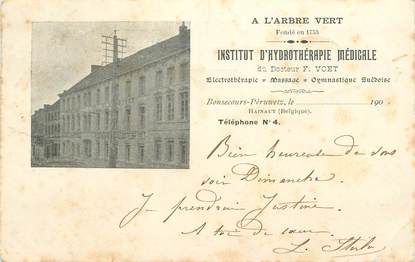 A L'ARBRE VERT
Fondé en 1753
INSTITUT D'HYDROTHÉRAPIE MÉDICALE
du Docteur F. VOET
Electrothérapie • Massage • Gymnastique Suédoise
Bonsecours-Péruwelz, le 190
HAINAUT (Belgique).
Téléphone N° 4.
Bien heureuse de
soir Dimanche.
Je prendrai Justine
A toi de cœur
L.